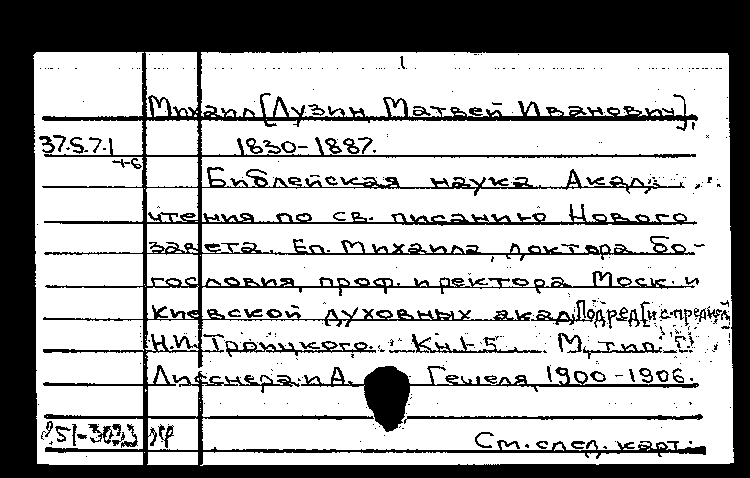 1
Михаил [Лузин, Матвей Иванович],
37.5.7.1 1830-1887.
+6
Библейская наука. Акад.
чтения по св. писанию Нового
завета. Еп. Михаила, доктора бо-
гословия, проф. и ректора Моск. и
Киевской духовных акад. Под ред. [и с предисл.]
Н.И. Троицкого. Кн. 1-5. М., тип. Г.
Лисснера и А. Гешеля, 1900-1906.
См. след. карт.